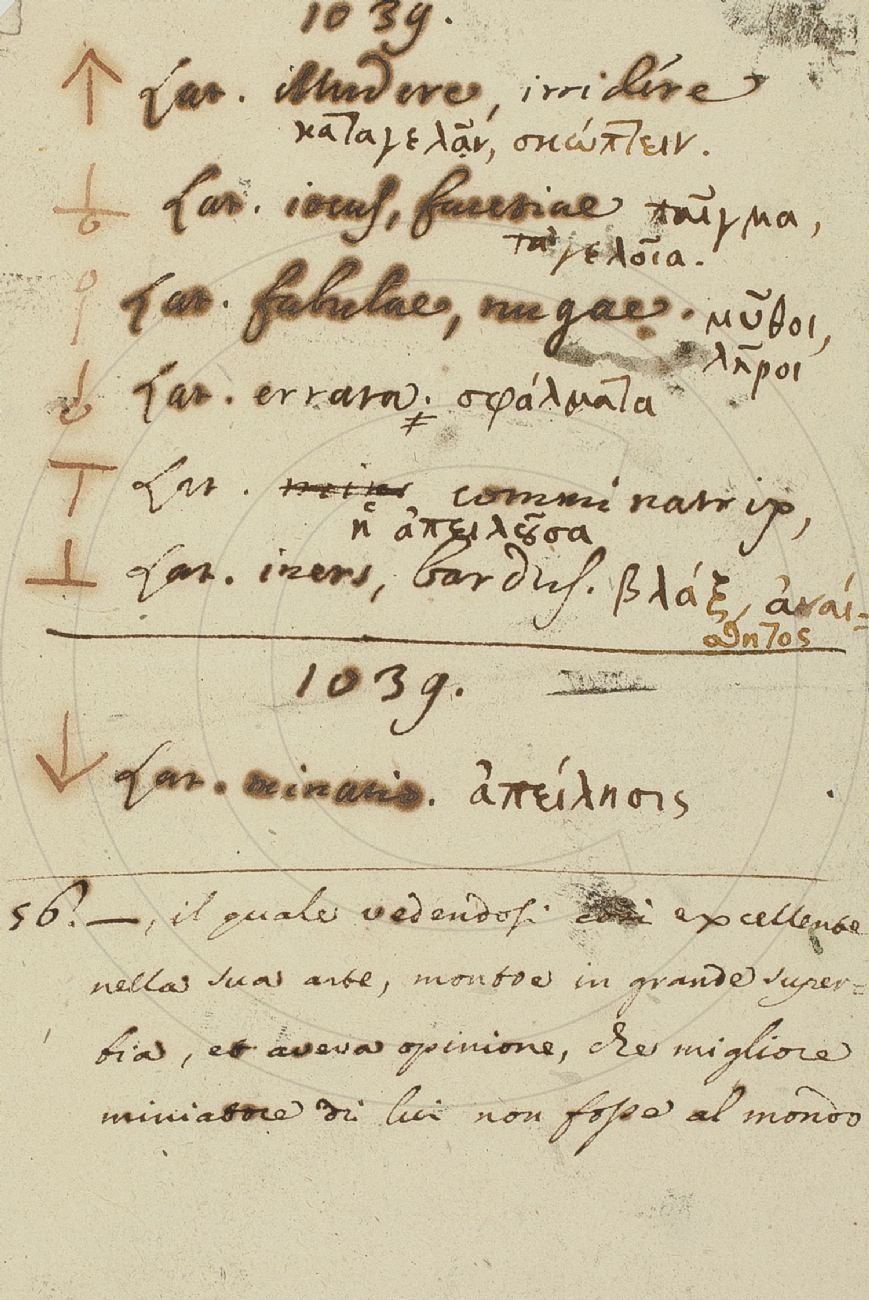 1039.
Lat. illudere, irridére
καταγελᾶν, σκώπτειν.
Lat. iocus, facetiae παῖγμα,
τὰ γελοῖα.
Lat. fabulae, nugae. μῦθοι,
λῆροι
Lat. errata. σφάλματα
Lat. comminatrix,
ἡ ἀπειλοῦσα
Lat. iners, bardus. βλάξ, ἀναί=
σθητος
1039.
Lat. minatio. ἀπείλησις
56. —, il quale vedendosi così excellente
nella sua arte, montoe in grande super=
bia, et aveva opinione, che migliore
miniatore di lui non fosse al mondo